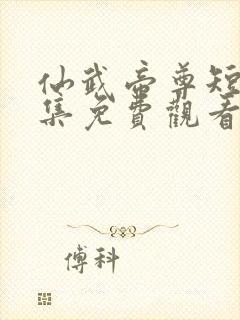 仙武帝尊短
集免費觀看
傅科